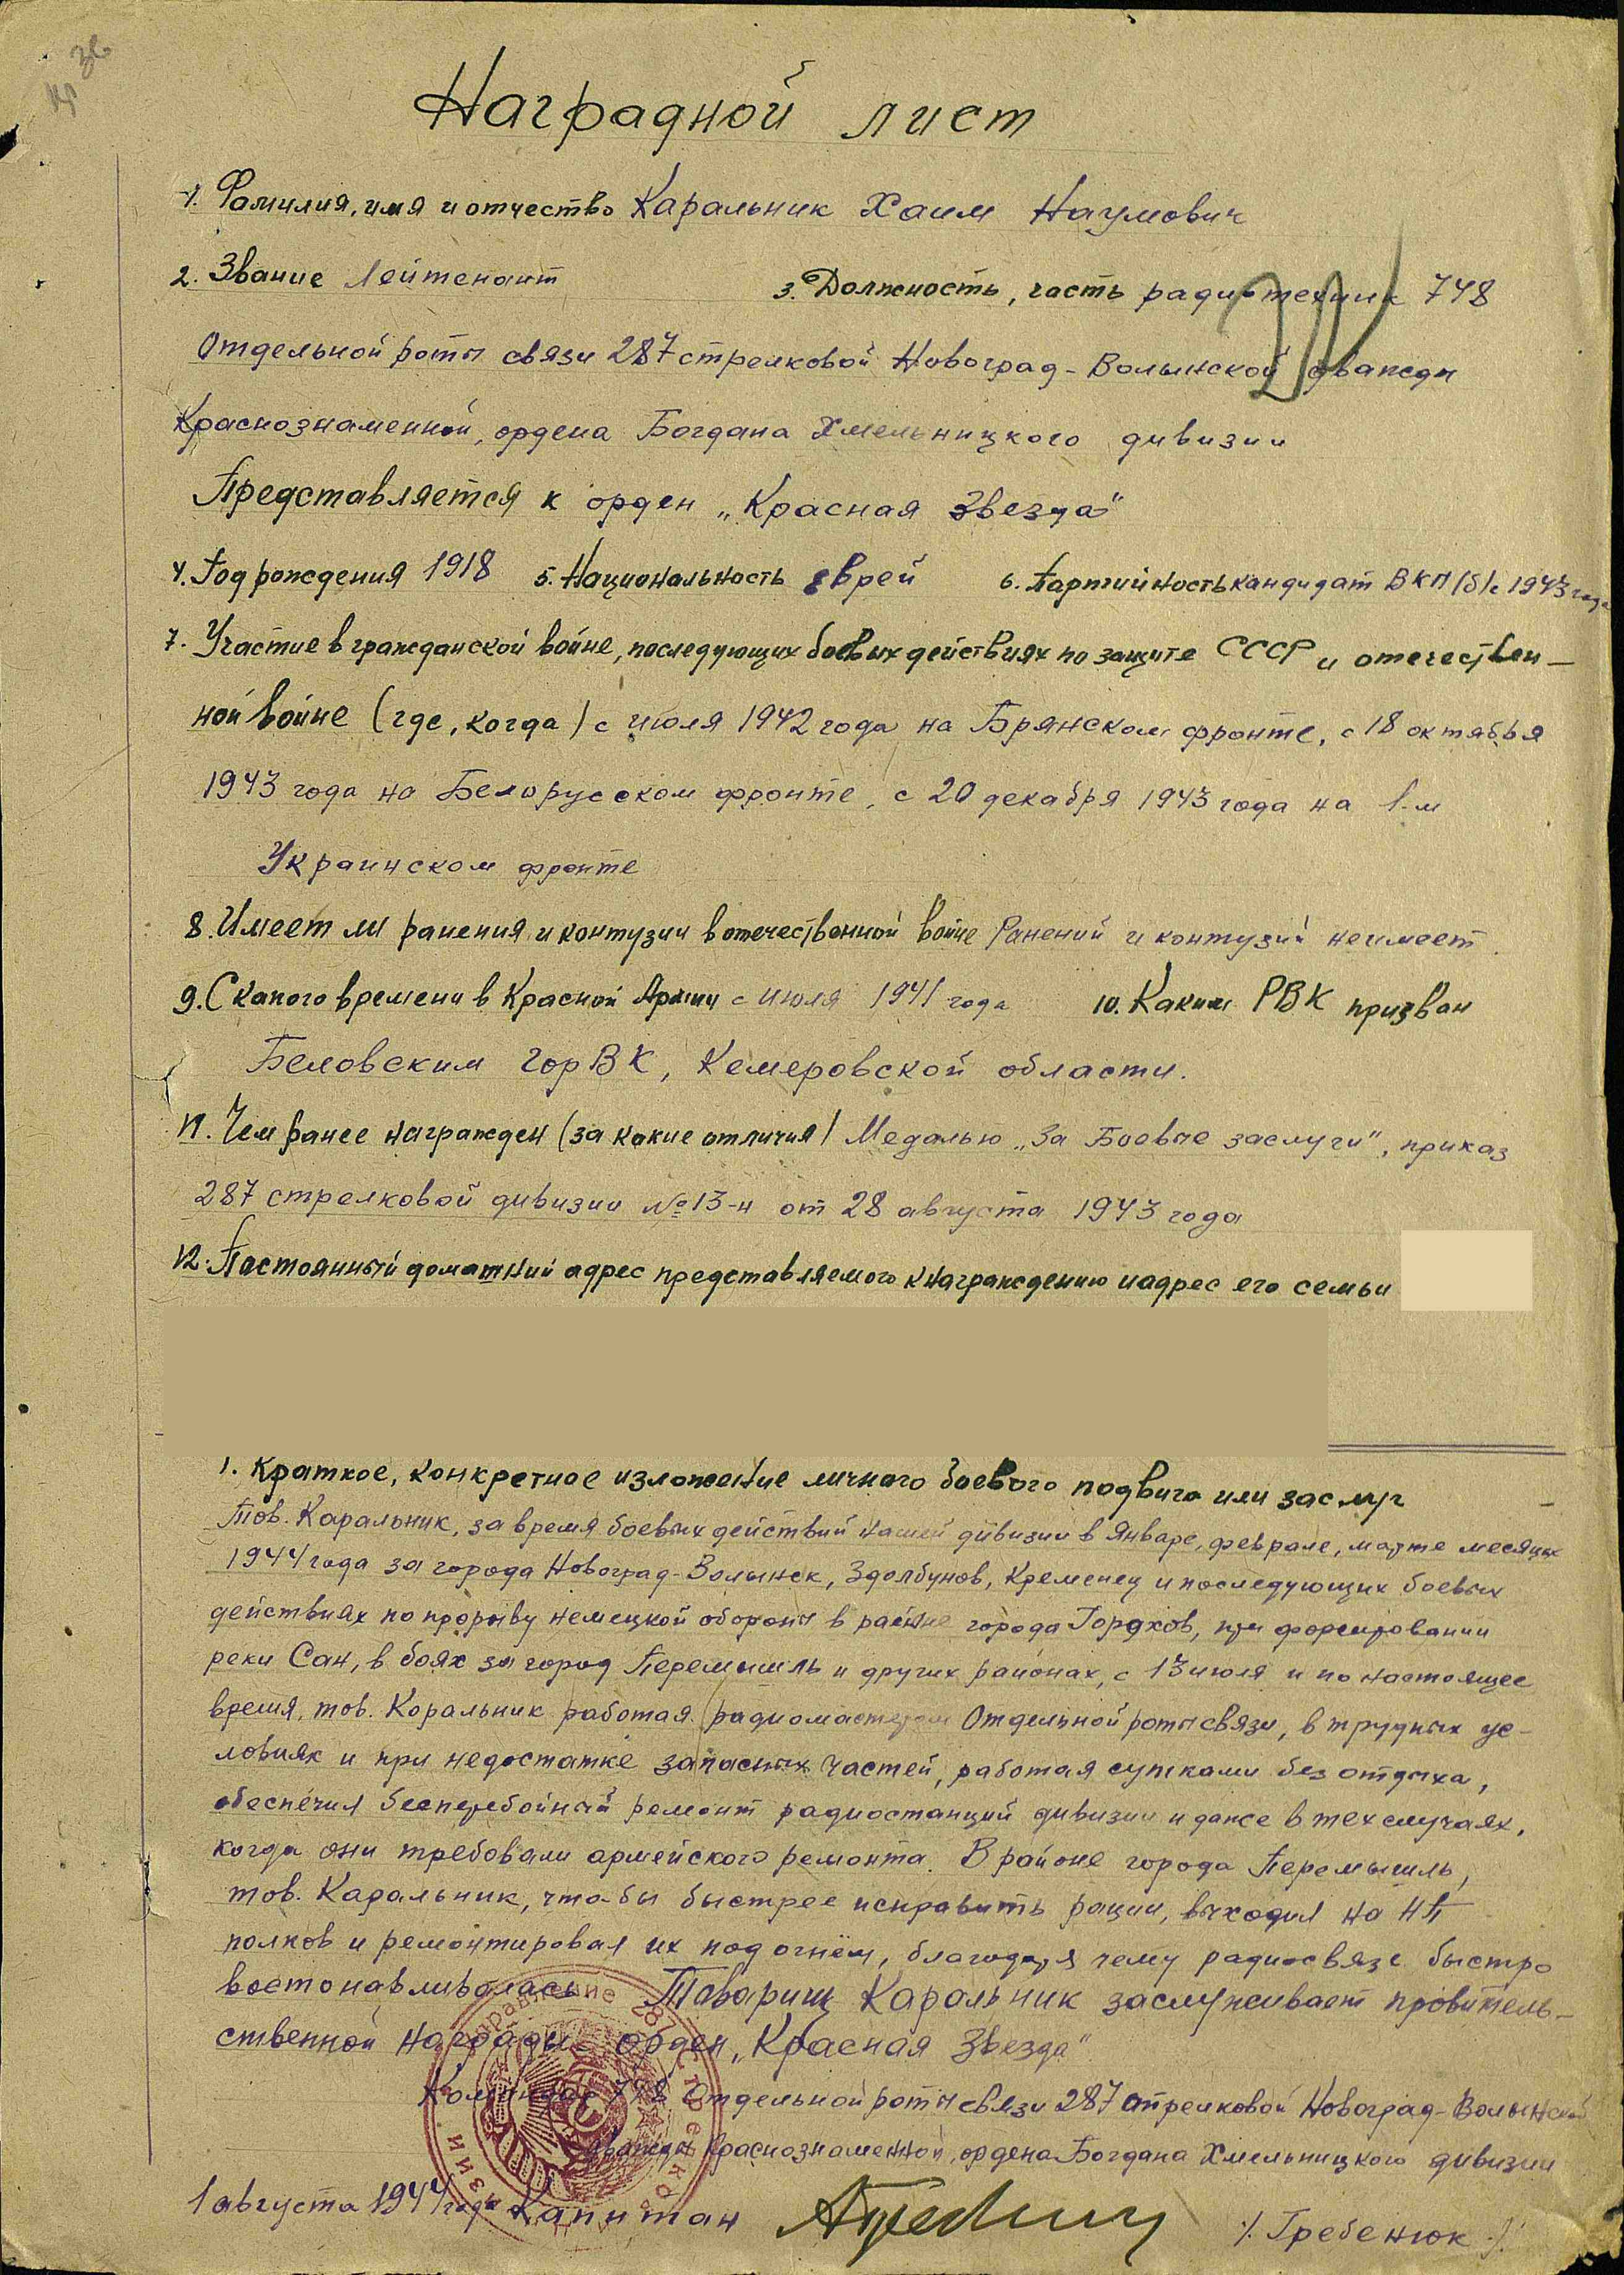 Наградной лист
1. Фамилия, имя и отчество Каральник Хаим Наумович
2. Звание Лейтенант 3. Должность, часть радиотехник 748
Отдельной роты связи 287 стрелковой Новоград-Волынской дважды
Краснознаменной, ордена Богдана Хмельницкого дивизии
Представляется к орден „Красная Звезда"
4. Год рождения 1918 5. Национальность еврей 6. Партийность кандидат ВКП/б/с 1943 года
7. Участие в гражданской войне, последующих боевых действиях по защите СССР и отечествен-
ной войне (где, когда) с июля 1942 года на Брянском фронте, с 18 октября
1943 года на Белорусском фронте, с 20 декабря 1943 года на 1-м
Украинском фронте
8. Имеет ли ранения и контузии в отечественной войне Ранений и контузий неимеет.
9. С какого времени в Красной Армии с июля 1941 года 10. Каким РВК призван
Беловским ГорВК, Кемеровской области.
11. Чем ранее награжден (за какие отличия) Медалью „За Боевые заслуги", приказ
287 стрелковой дивизии №13-н от 28 августа 1943 года
12. Постоянный домашний адрес представляемого к награждению и адрес его семьи
1. Краткое, конкретное изложение личного боевого подвига или заслуг
Тов. Каральник, за время боевых действий нашей дивизии в Январе, феврале, марте месяцах
1944 года за города Новоград-Волынск, Здолбунов, Кременец и последующих боевых
действиях по прорыву немецкой обороны в районе города Горохов, при форсировании
реки Сан, в боях за город Перемышль и других районах, с 13 июля и по настоящее
время, тов. Каральник работая радиомастером Отдельной роты связи, в трудных ус-
ловиях и при недостатке запасных частей, работая сутками без отдыха,
обеспечил бесперебойный ремонт радиостанций дивизии и даже в тех случаях,
когда они требовали армейского ремонта. В районе города Перемышль,
тов. Каральник, что-бы быстрее исправить рации, выходил на НП
полков и ремонтировал их под огнём, благодаря чему радиосвязь быстро
востонавливалась. Товарищ Каральник заслуживает правитель-
ственной награды орден „Красная Звезда"
Командир 748 Отдельной роты связи 287 стрелковой Новоград-Волынской
дважды Краснознаменной, ордена Богдана Хмельницкого дивизии
1 августа 1944 года Капитан /. Гребенюк ./